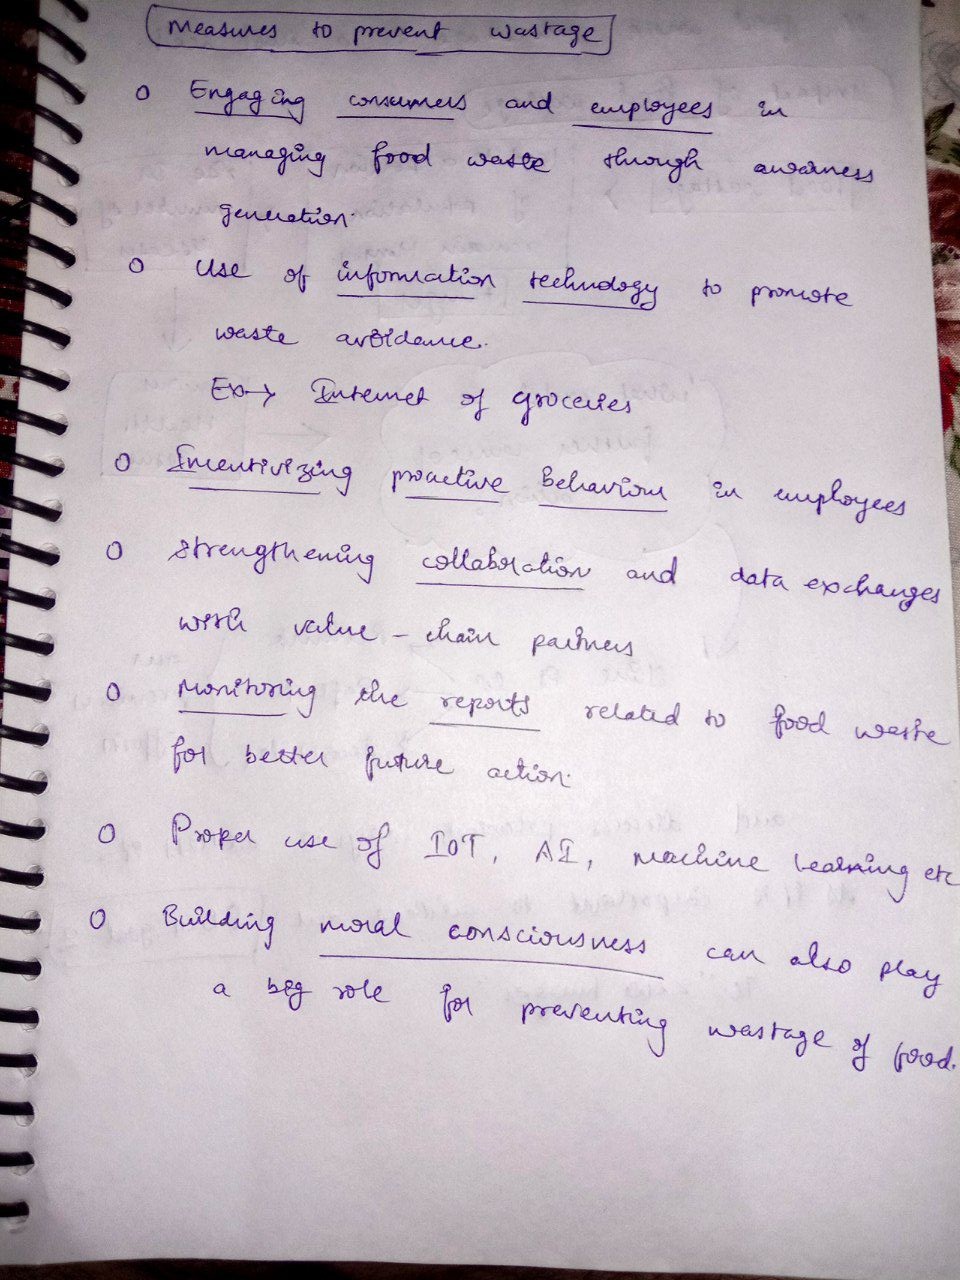 Measures to prevent wastage
o Engaging consumers and employees in
managing food waste through awarness
generation.
o Use of information technology to promote
waste avoidance.
Ex→ Internet of groceries
o Incentivizing proactive behaviour in employees
o Strengthening collaboration and data exchanges
with value-chain partners
o Monitoring the reports related to food waste
for better future action.
o Proper use of IOT, AI, Machine learning etc
o Building moral consciousness can also play
a big role for preventing wastage of food.